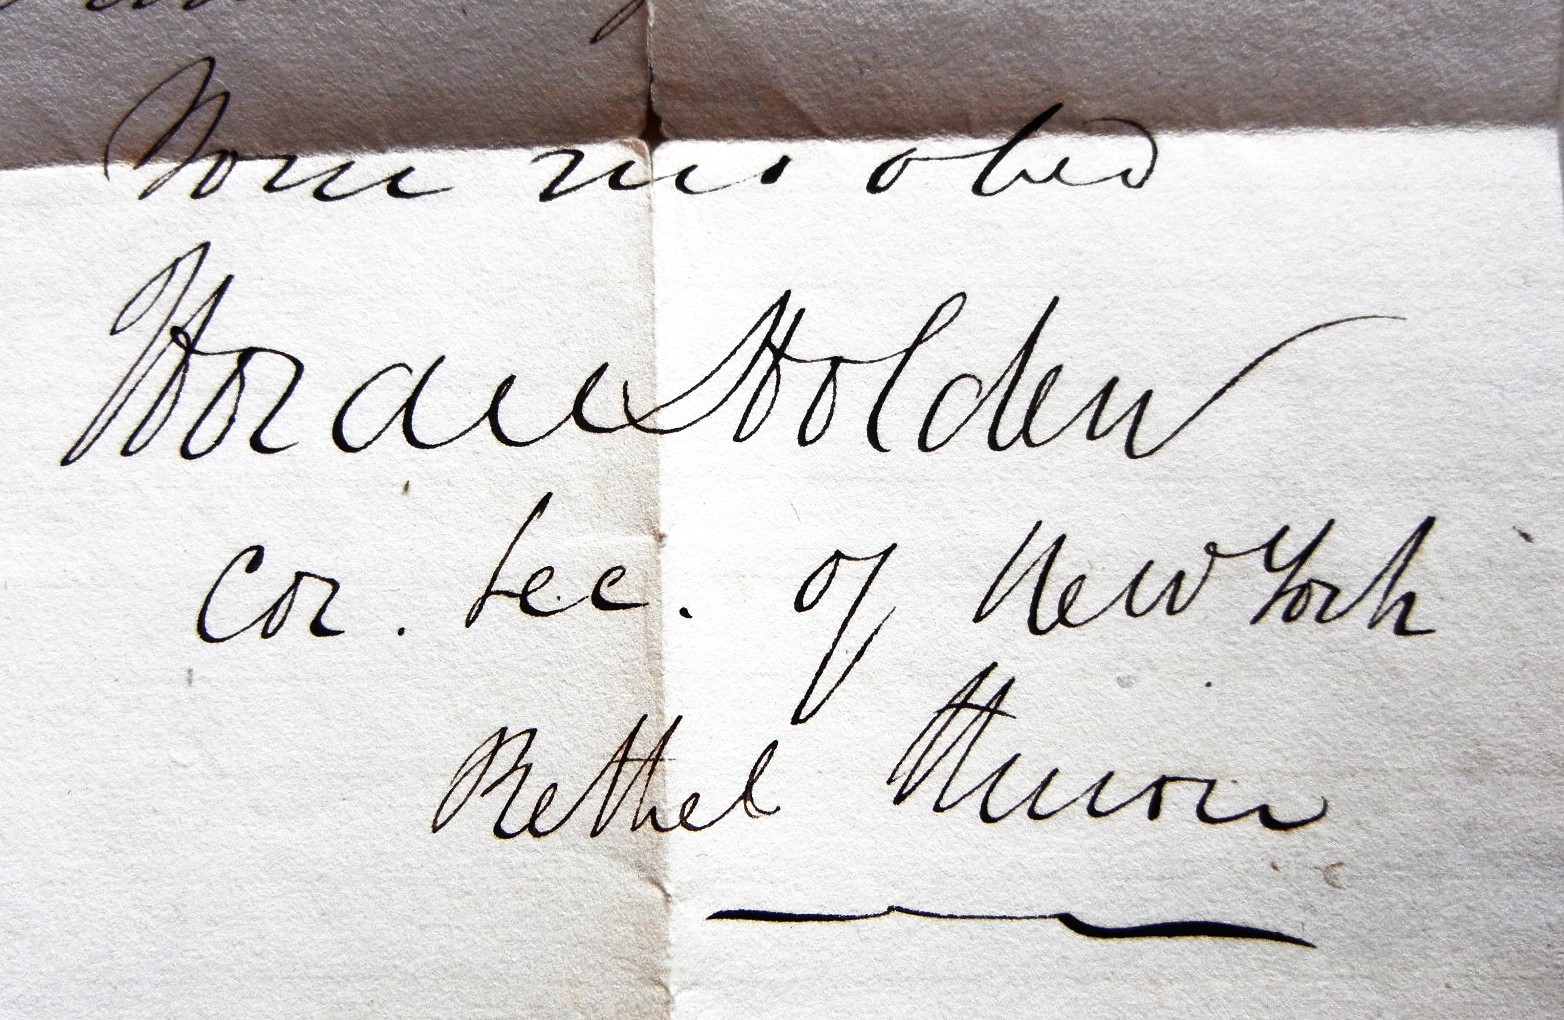 Your mo. obed
Horace Holden
Cor. Sec. of New York
Bethel Union